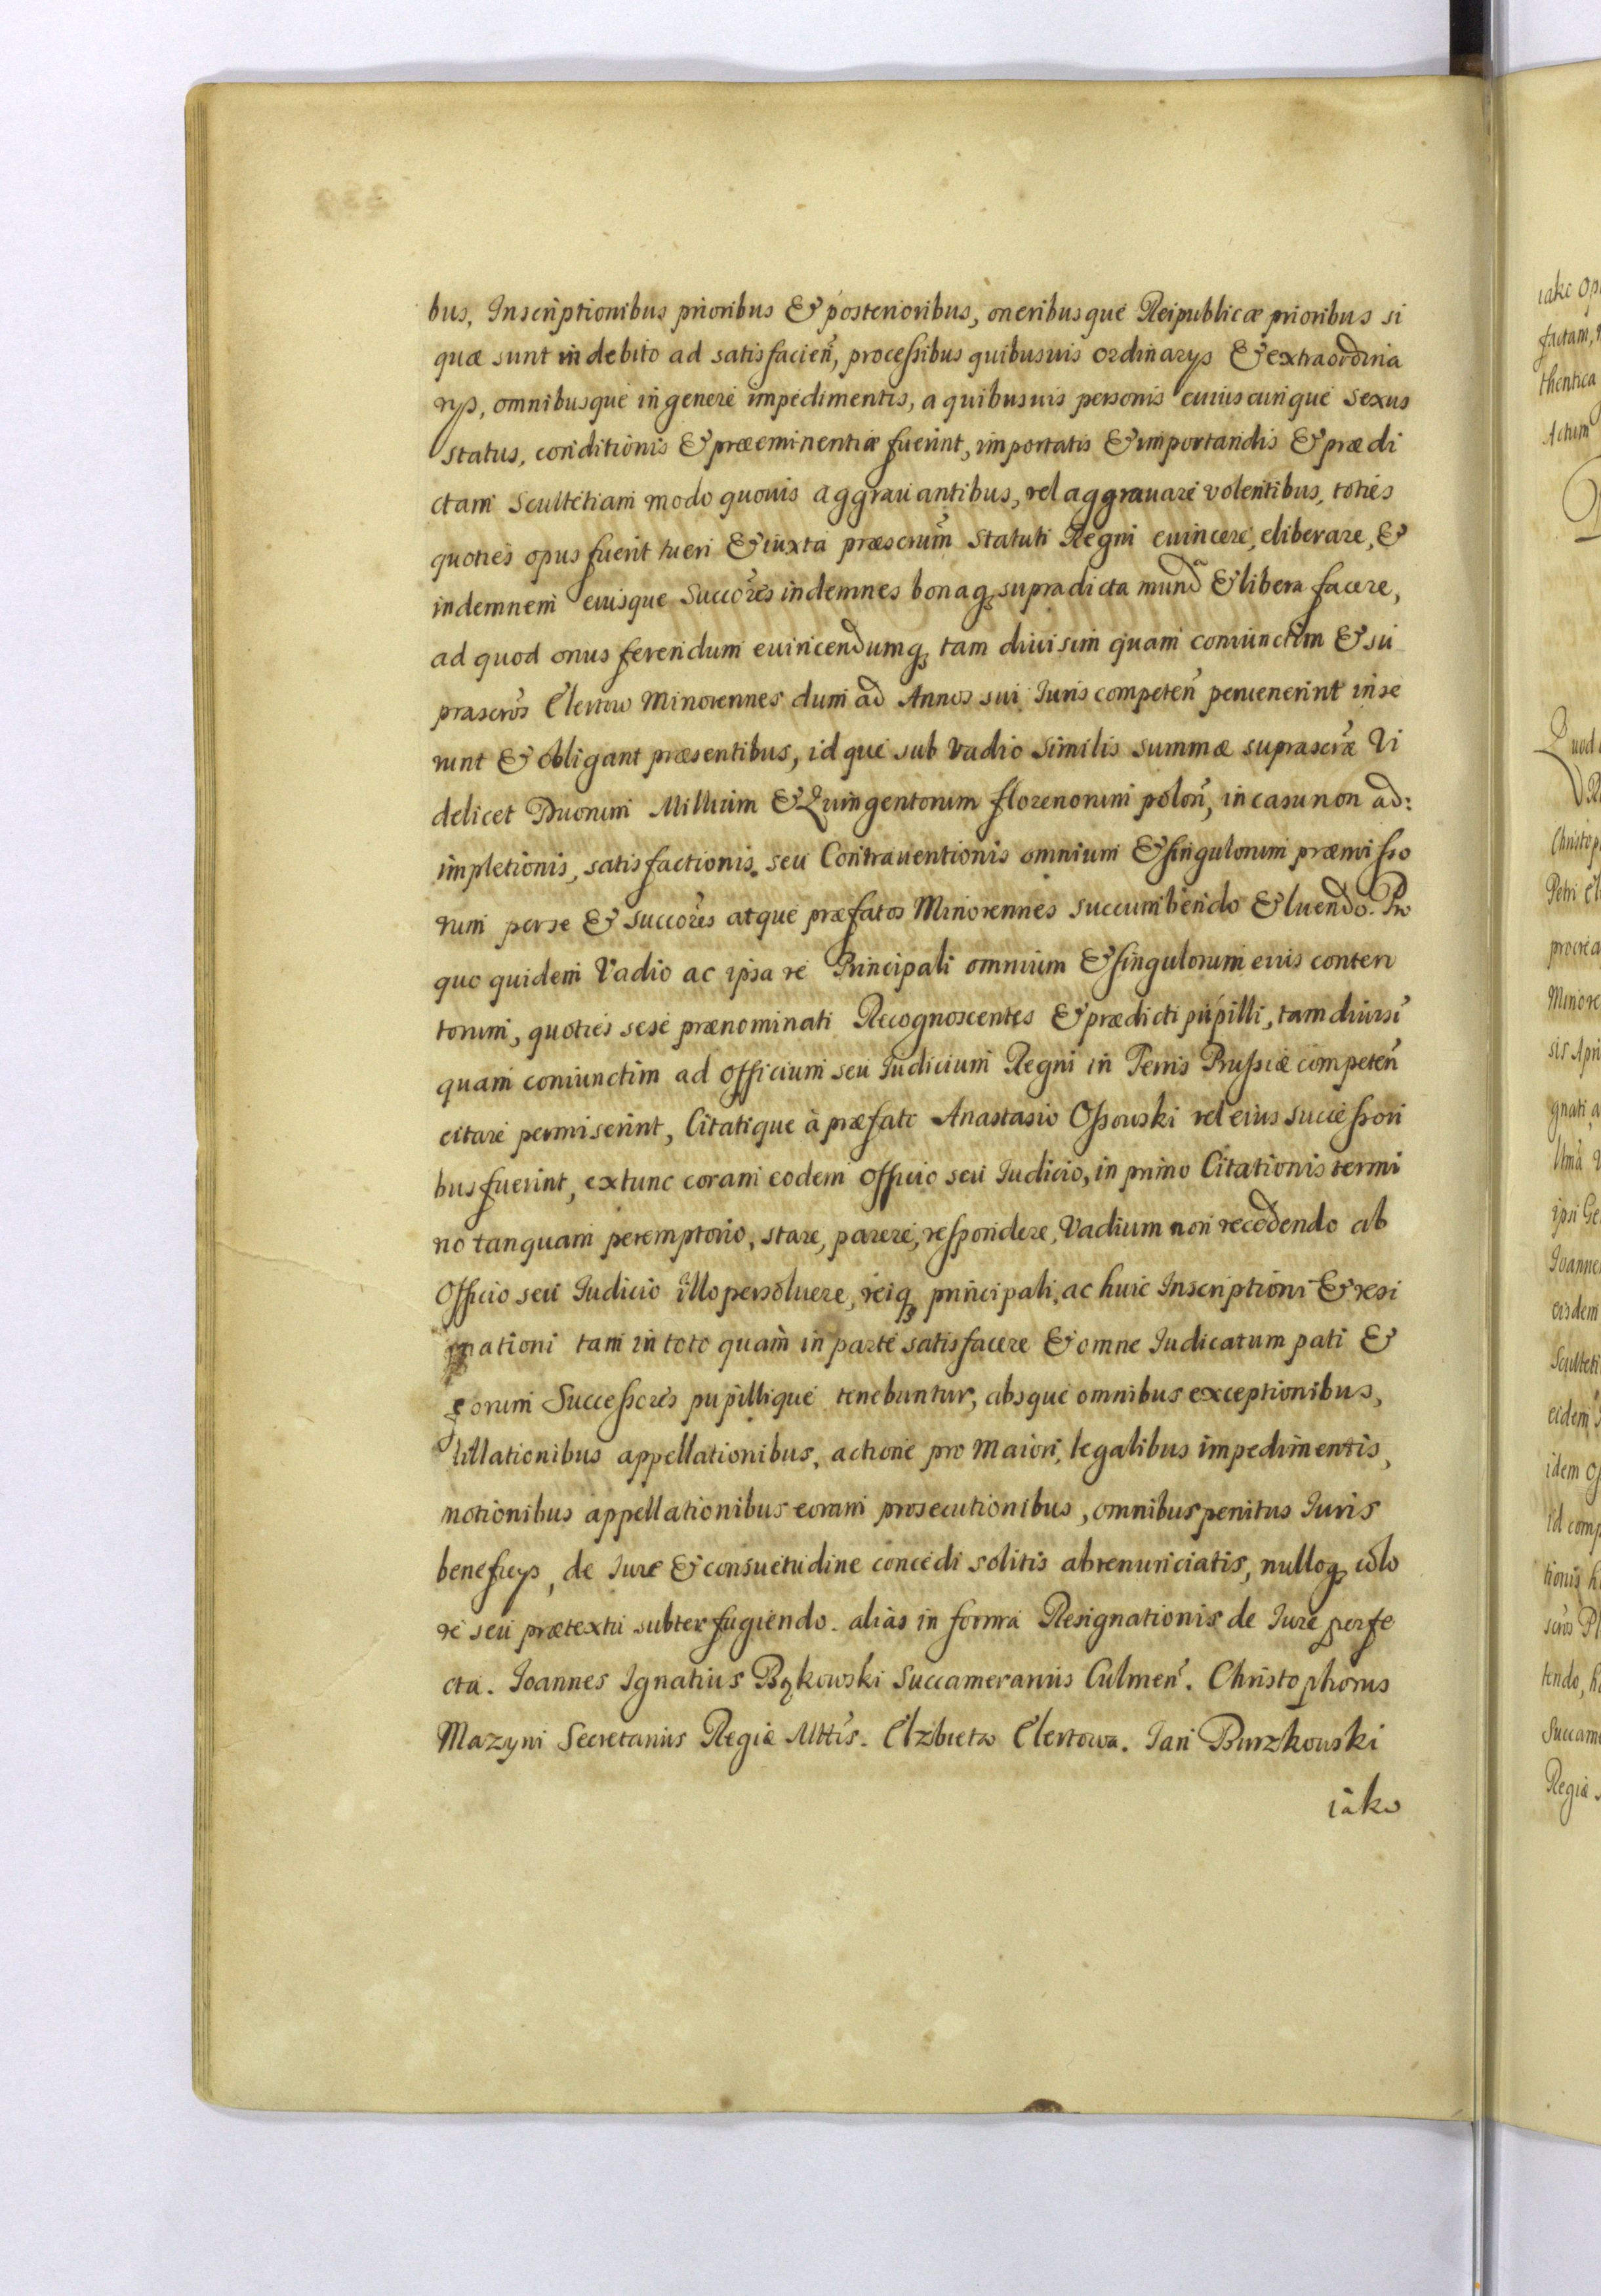 bus, Inscriptionibus prioribus & posterioribus, oneribusque Reipublicæ prioribus si
quæ sunt in debito ad satisfacień, processibus quibusuis ordinarys & extraordina
rys, omnibusque in genere impedimentis, a quibusuis personis cuiuscunque sexus
status, conditionis & præeminentiæ fuerint, importatis & importandis & prædi
ctam Scultetiam modo quouis aggrauantibus, vel aggrauare volentibus, toties
quoties opus fuerit tueri & iuxta præscrum̃ Statuti Regni euincere, eliberare, &
indemnem eiusque Succores indemnes bonaq; supradicta munda & libera facere,
ad quod onus ferendum euincendumq; tam diuisim quam coniunctim & su
prascros Elertow Minorennes dum ad Annos sui Iuris competeñ peruenerint inse
runt & obligant præsentibus, id que sub Vadio similis summæ suprascræ Vi
delicet Duorum Millium & Quingentorum florenorum poloñ, in casu non ad:
impletionis, satisfactionis seu Contrauentionis omnium & singulorum præmisso
rum per se & succores atque præfatos Minorennes succumbendo & luendo. Pro
quo quidem Vadio ac ipsa re Principali omnium & singulorum eius conten
torum, quoties sese prænominati Recognoscentes & prædicti pupilli, tam diuisi
quam coniunctim ad Officium seu Iudicium Regni in Terris Prussiæ competeñ
citare permiserint, Citatique à præfato Anastasio Ossowski vel eius successori
bus fuerint, extunc coram eodem Officio seu Iudicio, in primo Citationis termi
no tanquam peremptorio, stare, parere, respondere, Vadium non recedendo ab
Officio seu Iudicio illo persoluere, reiq; principali, ac huic Inscriptioni & resi
gnationi tam in toto quam in parte satisfacere & omne Iudicatum pati &
eorum Successores pupillique tenebuntur, absque omnibus exceptionibus,
dillationibus appellationibus, actione pro Maiori, legalibus impedimentis,
motionibus appellationibus eorum prosecutionibus, omnibus penitus Iuris
beneficys, de Iure & consuetudine concedi solitis abrenunciatis, nulloq; colo
re seu prætextu subterfugiendo. alias in forma Resignationis de Iure perfe
cta. Joannes Ignatius Bąkowski Succamerarius Culmeñ. Christophorus
Mazyni Secretarius Regiæ Mttis. Elzbieta Elertowa. Jan Burzkowski
iako